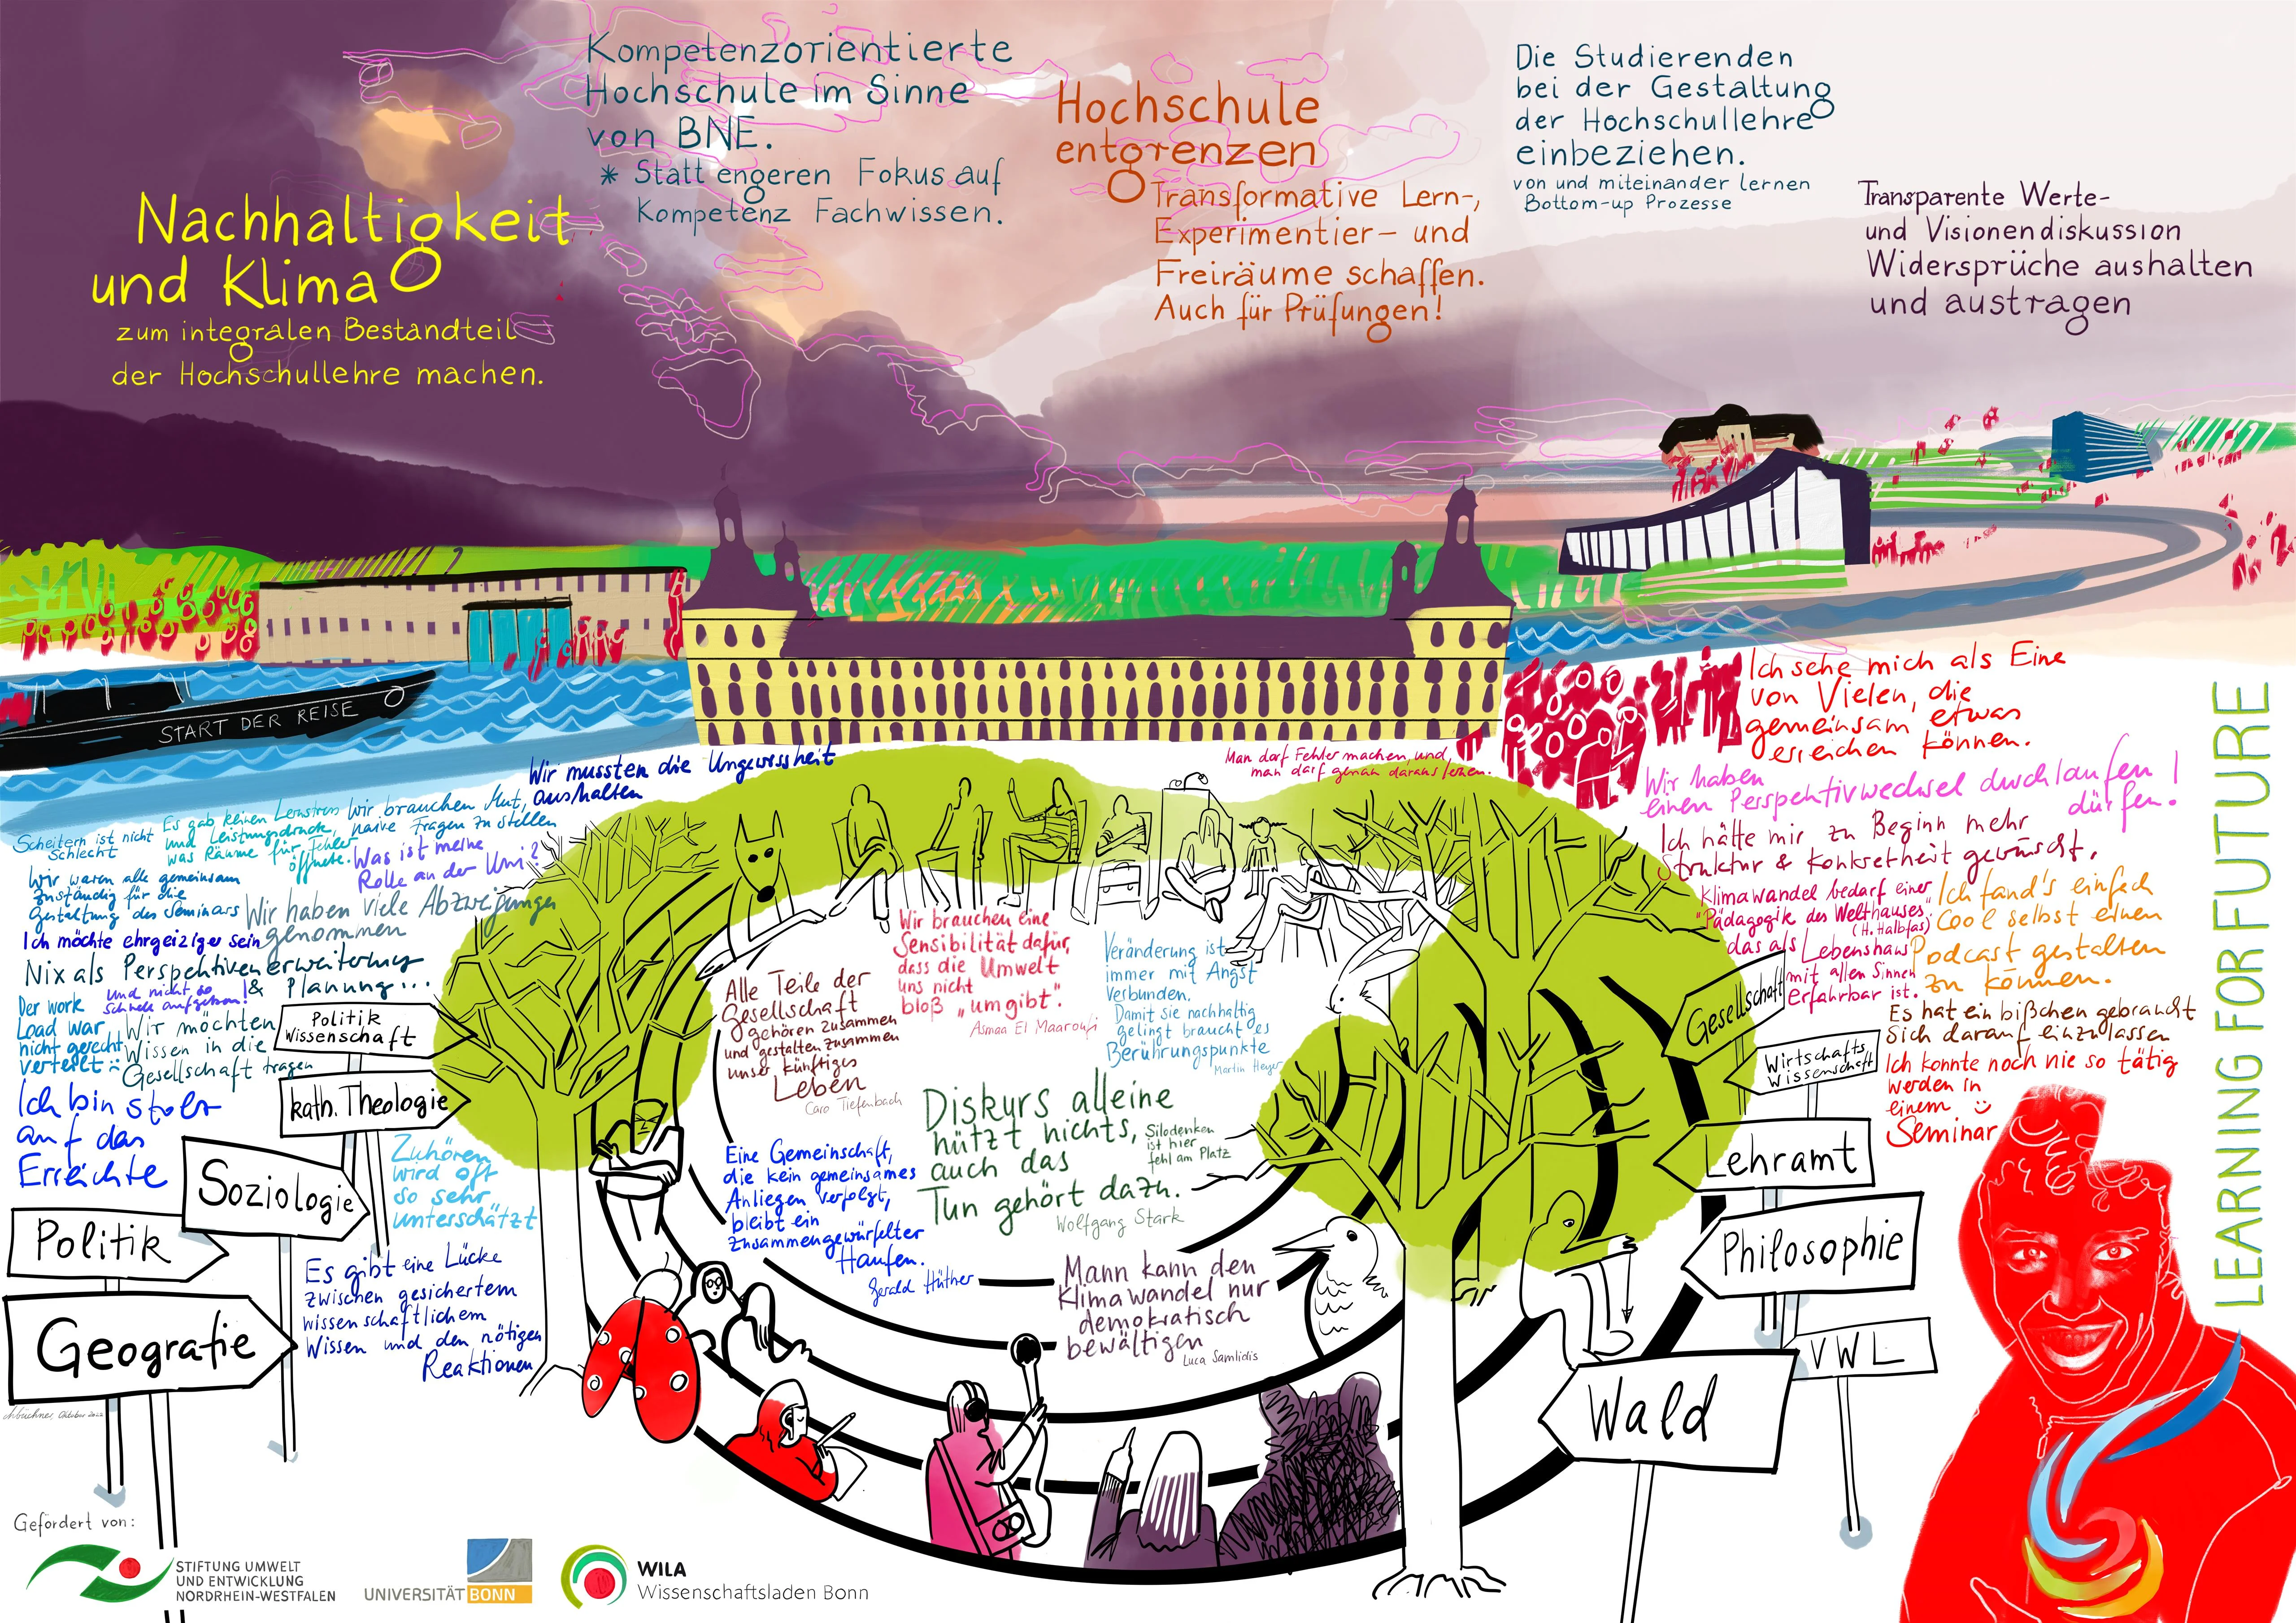 Kompetenzorientierte
Hochschule im Sinne
von BNE.
* Statt engeren Fokus auf
Kompetenz Fachwissen.
Nachhaltigkeit
und Klima
zum integralen Bestandteil
der Hochschullehre machen.
Hochschule
entgrenzen
Transformative Lern-,
Experimentier- und
Freiräume schaffen.
Auch für Prüfungen!
Die Studierenden
bei der Gestaltung
der Hochschullehre
einbeziehen.
von und miteinander lernen
Bottom-up Prozesse
Transparente Werte-
und Visionendiskussion
Widersprüche aushalten
und austragen
START DER REISE
Wir mussten die Ungewissheit
aushalten
Man darf Fehler machen, und
man darf genau daraus lernen.
Ich sehe mich als Eine
von Vielen, die
gemeinsam etwas
erreichen können.
Wir haben
einen Perspektivwechsel durchlaufen
dürfen!
Ich hätte mir zu Beginn mehr
Struktur & Konkretheit gewünscht.
Klimawandel bedarf einer
"Pädagogik des Welthauses"
(H. Halbfas)
das als Lebenshaus
mit allen Sinnen
erfahrbar ist.
Ich fand's einfach
Cool selbst einen
Podcast gestalten
zu können.
Es hat ein bißchen gebraucht
sich darauf einzulassen
Ich konnte noch nie so tätig
werden in
einem
Seminar
LEARNING FOR FUTURE
Scheitern ist nicht
Schlecht
Es gab keinen Lernstress
und Leistungsdruck,
was Räume für Fehler
öffnete.
Wir brauchen Mut,
naive Fragen zu stellen
Was ist meine
Rolle an der Uni?
Wir waren alle gemeinsam
zuständig für die
Gestaltung des Seminars
Wir haben viele Abzweigungen
genommen
Ich möchte ehrgeiziger sein
und nicht so
schnell aufgeben!
Nix als Perspektivenerweiterung
& Planung...
Der work
Load war
nicht gerecht
verteilt :-
Wir möchten
Wissen in die
Gesellschaft tragen
Ich bin stolz
auf das
Erreichte
Zuhören
wird oft
so sehr
unterschätzt
Es gibt eine Lücke
zwischen gesichertem
wissenschaftlichem
Wissen und den nötigen
Reaktionen
Politik
Wissenschaft
kath. Theologie
Soziologie
Politik
Geografie
Alle Teile der
Gesellschaft
gehören zusammen
und gestalten zusammen
unser künftiges
Leben
Caro Tiefenbach
Wir brauchen eine
Sensibilität dafür,
dass die Umwelt
uns nicht
bloß „umgibt".
Asmaa El Maaroufi
Veränderung ist
immer mit Angst
verbunden.
Damit sie nachhaltig
gelingt braucht es
Berührungspunkte
Martin Heyer
Diskurs alleine
nützt nichts,
auch das
Tun gehört dazu.
Wolfgang Stark
Silodenken
ist hier
fehl am Platz
Eine Gemeinschaft,
die kein gemeinsames
Anliegen verfolgt,
bleibt ein
zusammengewürfelter
Haufen.
Gerald Hüther
Mann kann den
Klimawandel nur
demokratisch
bewältigen
Luca Samlidis
Gesellschaft
Wirtschafts
Wissenschaft
Lehramt
Philosophie
VWL
Wald
Oktober 2022
Gefördert von:
STIFTUNG UMWELT
UND ENTWICKLUNG
NORDRHEIN-WESTFALEN
UNIVERSITÄT BONN
WILA
Wissenschaftsladen Bonn